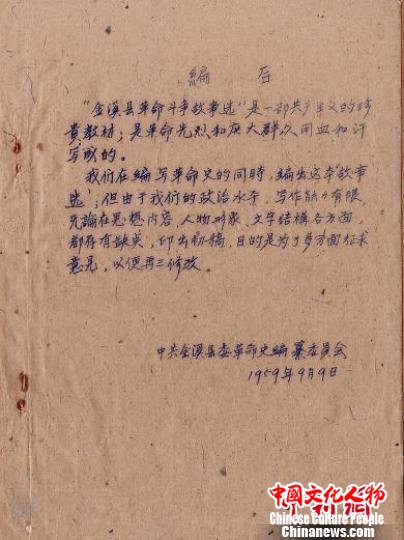 编 后
“金溪县革命斗争故事选”是一部共产主义的珍
贵教材；是革命先烈和广大群众用血和汗
写成的。
我们在编写革命史的同时，编出这本故事
选，但由于我们的政治水平、写作能力有限，
无論在思想内容、人物形象、文字结構各方面，
都存有缺点，印出初稿，目的是为了多方面征求
意見，以便再三修改。
中共金溪县委革命史编纂委员会
1959年9月9日
中國文化人物
Chinese Culture People
Chinanews.com